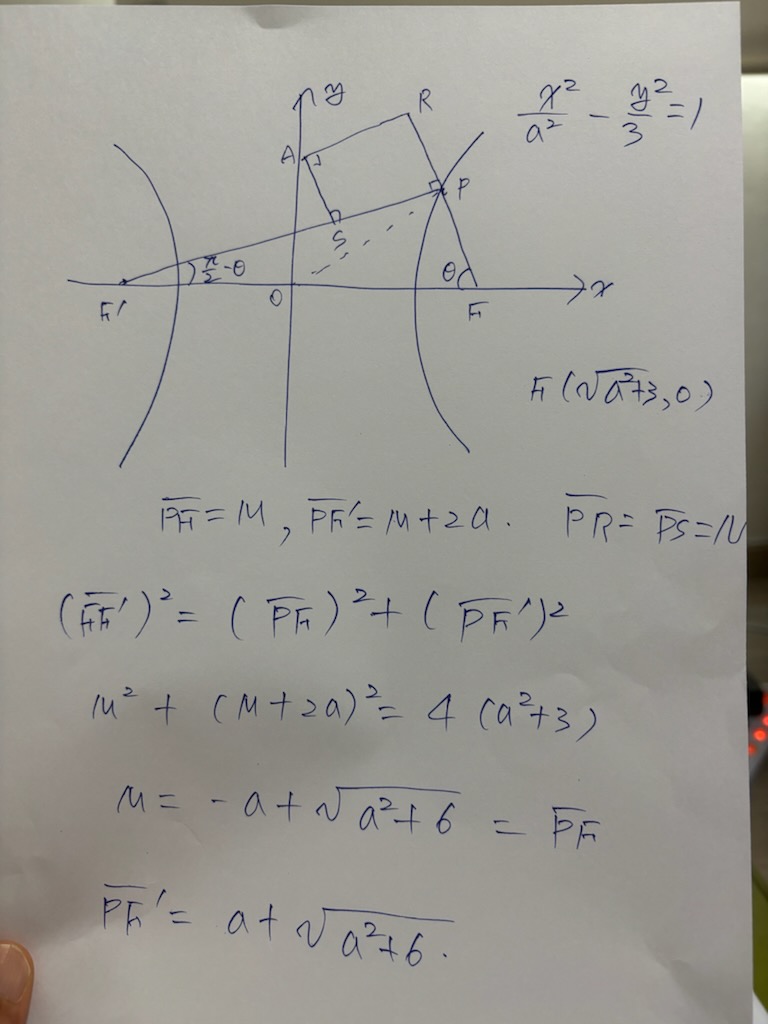 y
R
x²/a² - y²/3 = 1
A
P
S
π/2 - θ
θ
F'
O
F
x
F(√(a²+3), 0)
P̅F̅ = M, P̅F̅' = M+2a. P̅R̅ = P̅S̅ = N
(F̅F̅')² = (P̅F̅)² + (P̅F̅')²
M² + (M+2a)² = 4(a²+3)
M = -a + √(a²+6) = P̅F̅
P̅F̅' = a + √(a²+6).